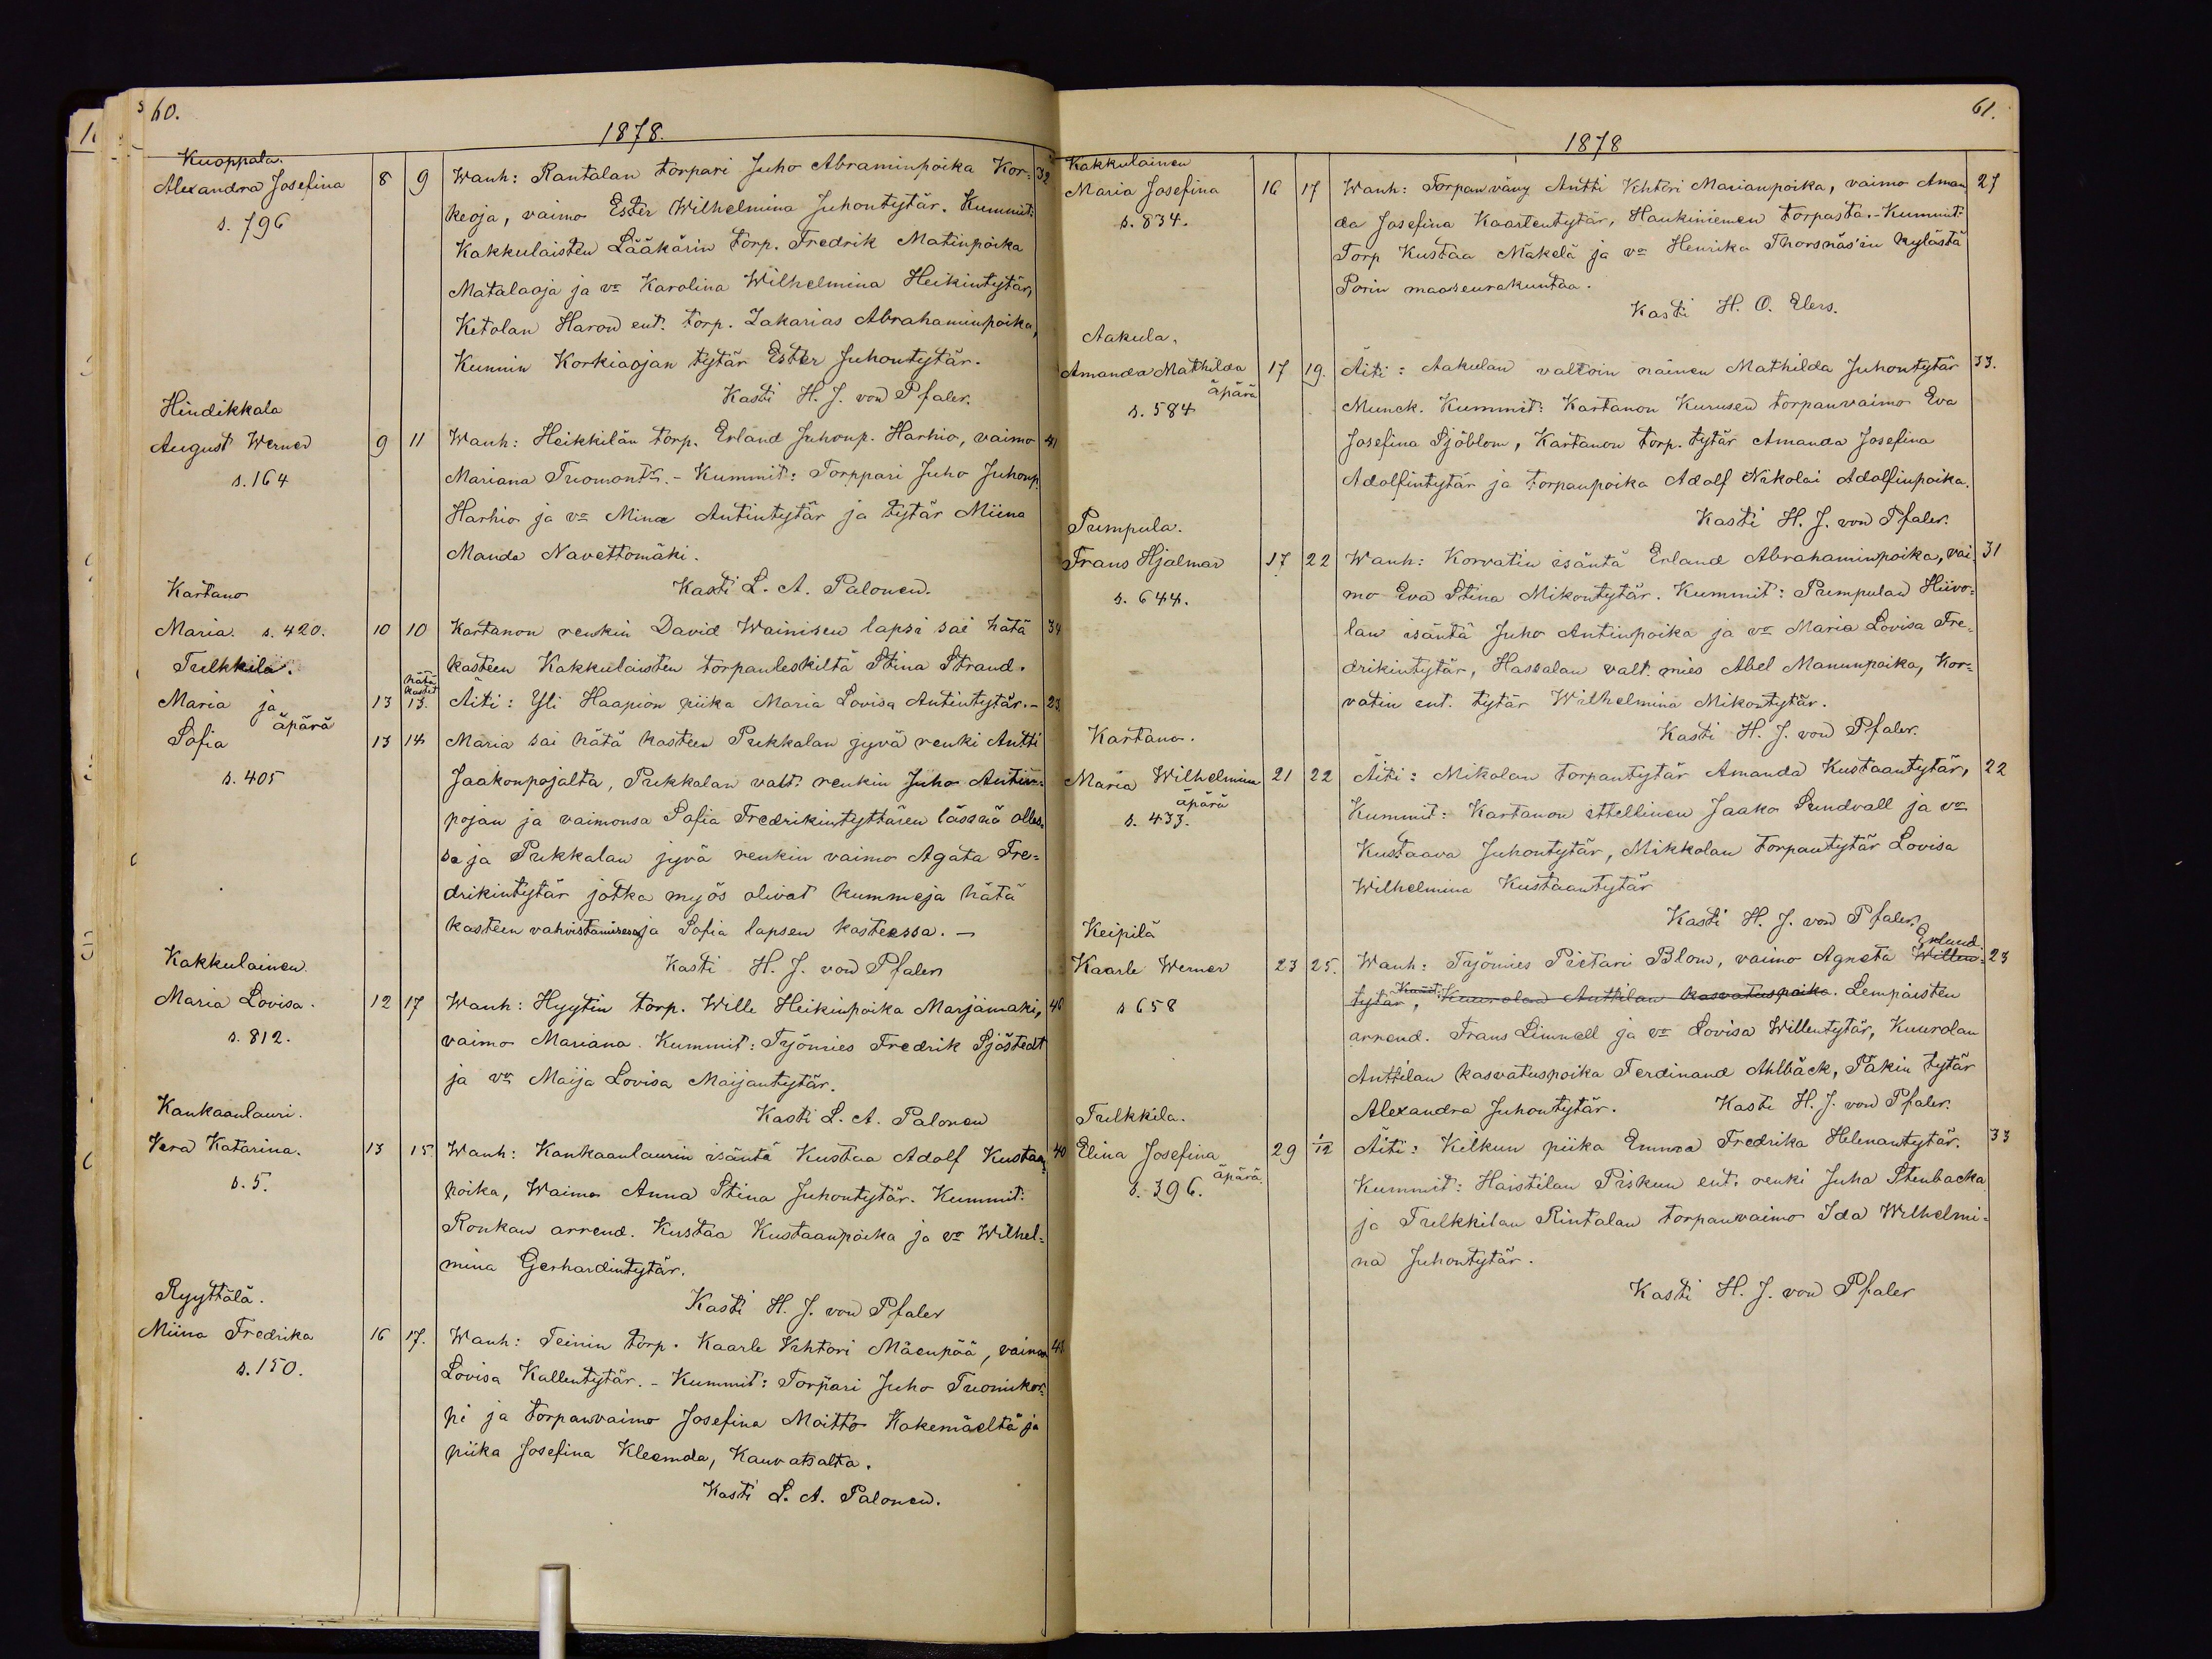 60.
1878.
Kuoppala.
Alexandra Josefina 8 9 Wanh: Rantalan torpari Juho Abraminpoika Kor= 32
s. 796 keoja, vaimo Ester Wilhelmina Juhontytär. Kummit:
Kakkulaisten Lääkärin torp. Fredrik Matinpoika
Matalaoja ja vo Karolina Wilhelmina Heikintytär,
Ketolan Haron ent. torp. Zakarias Abrahaminpoika,
Kunnin Korkiaojan tytär Ester Juhontytär.
Kasti H. J. von Pfaler.
Hindikkala
August Werner 9 11 Wanh: Heikkilän torp. Erland Juhonp. Harhio, vaimo 41
s. 164 Mariana Tuomontr. - Kummit: Torppari Juho Juhonp.
Harhio ja vo Mina Antintytär ja tytär Miina
Manda Navettomäki.
Kasti L. A. Palonen.
Kartano
Maria. s. 420. 10 10 Kartanon renkin David Wainisen lapsi sai hätä 34
Tulkkila. kasteen Kakkulaisten torpanleskiltä Stina Strand.
hätä kastet
Maria ja 13 13. Äiti: Yli Haapion piika Maria Lovisa Antintytär. - 23.
äpärä
Sofia 13 14 Maria sai hätä kasteen Pukkalan jyvä renki Antti
s. 405 Jaakonpojalta, Pukkalan valt. renkin Juho Antin=
pojan ja vaimonsa Sofia Fredrikintyttären läsnä olles=
sa ja Pukkalan jyvä renkin vaimo Agata Fre=
drikintytär jotka myös olivat kummeja hätä
kasteen vahvistamisessa ja Sofia lapsen kasteessa. -
Kasti H. J. von Pfaler
Kakkulainen.
Maria Lovisa. 12 17 Wanh: Hyytin torp. Wille Heikinpoika Marjamäki, 46
s. 812. vaimo Mariana. Kummit: Työmies Fredrik Sjöstedt
ja vo Maija Lovisa Maijantytär.
Kasti L. A. Palonen
Kankaanlauri.
Vera Katarina. 13 15 Wanh: Kankaanlaurin isäntä Kustaa Adolf Kustaan 40
s. 5. poika, Waimo Anna Stina Juhontytär. Kummit:
Ronkan arrend. Kustaa Kustaanpoika ja vo Wilhel=
mina Gerhardintytär.
Kasti H. J. von Pfaler
Ryyttälä.
Miina Fredrika 16 17. Wanh: Teinin torp. Kaarle Vihtori Mäenpää, vaimo 43
s. 150. Lovisa Kallentytär. - Kummit: Torpari Juho Tuomikor=
pi ja torpanvaimo Josefina Moitto Kokemäeltä ja
piika Josefina Kleemola, Kauvatsalta.
Kasti L. A. Palonen.
61.
1878
Kakkulainen
Maria Josefina 16 17 Wanh: Torpan väny Antti Vihtori Marianpoika, vaimo Aman= 27
s. 834. da Josefina Kaarlentytär, Haukiniemen torpasta. - Kummit:
Torp Kustaa Mäkelä ja vo Henrika Thorsnäs'in kylästä
Porin maaseurakuntaa.
Kasti H. O. Elers.
Aakula.
Amanda Mathilda 17 19. Äiti: Aakulan valtoin nainen Mathilda Juhontytär 33.
äpärä
s. 584 Munck. Kummit: Kartanon Kurusen torpanvaimo Eva
Josefina Sjöblom, Kartanon torp. tytär Amanda Josefina
Adolfintytär ja torpanpoika Adolf Nikolai Adolfinpoika.
Kasti H. J. von Pfaler.
Pumpula.
Frans Hjalmar 17 22 Wanh: Korvatin isäntä Erland Abrahaminpoika, vai= 31
s. 644. mo Eva Stina Mikontytär. Kummit: Pumpulan Hiivo=
lan isäntä Juho Antinpoika ja vo Maria Lovisa Fre=
drikintytär, Hassalan valt. mies Abel Manunpoika, Kor=
vatin ent. tytär Wilhelmina Mikontytär.
Kasti H. J. von Pfaler.
Kartano.
Maria Wilhelmina 21 22 Äiti: Mikolan torpantytär Amanda Kustaantytär, 22
äpärä
s. 433. Kummit: Kartanon ittellinen Jaako Sundvall ja vo
Kustaava Juhontytär, Mikkolan torpantytär Lovisa
Wilhelmina Kustaantytär
Kasti H. J. von Pfaler.
Keipilä
Erland.
Kaarle Werner 23 25. Wanh: Työmies Pietari Blom, vaimo Agneta Willen= 23
s 658 tytär, Kumit: Kuurolan Anttilan kasvatuspoika. Lempäisten
arrend. Frans Limnell ja vo Lovisa Willentytär, Kuurolan
Anttilan kasvatuspoika Ferdinand Ahlbäck, Päkin tytär
Alexandra Juhontytär. Kasti H. J. von Pfaler.
Tulkkila.
Elina Josefina 29 1/12 Äiti: Kilkun piika Emma Fredrika Helenantytär. 33
äpärä.
s. 396. Kummit: Haistilan Piskun ent. renki Juha Stenbacka
ja Tulkkilan Rintalan torpanvaimo Ida Wilhelmi=
na Juhontytär.
Kasti H. J. von Pfaler